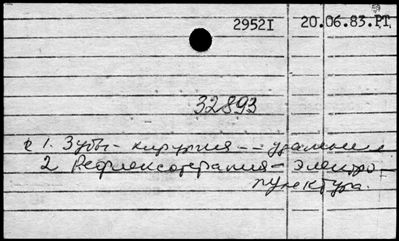 29521 20.06.83.РТ
32893
1. Зубы - хирургия -- удаление
2 Рефлексотерапия - электро-
пунктура.